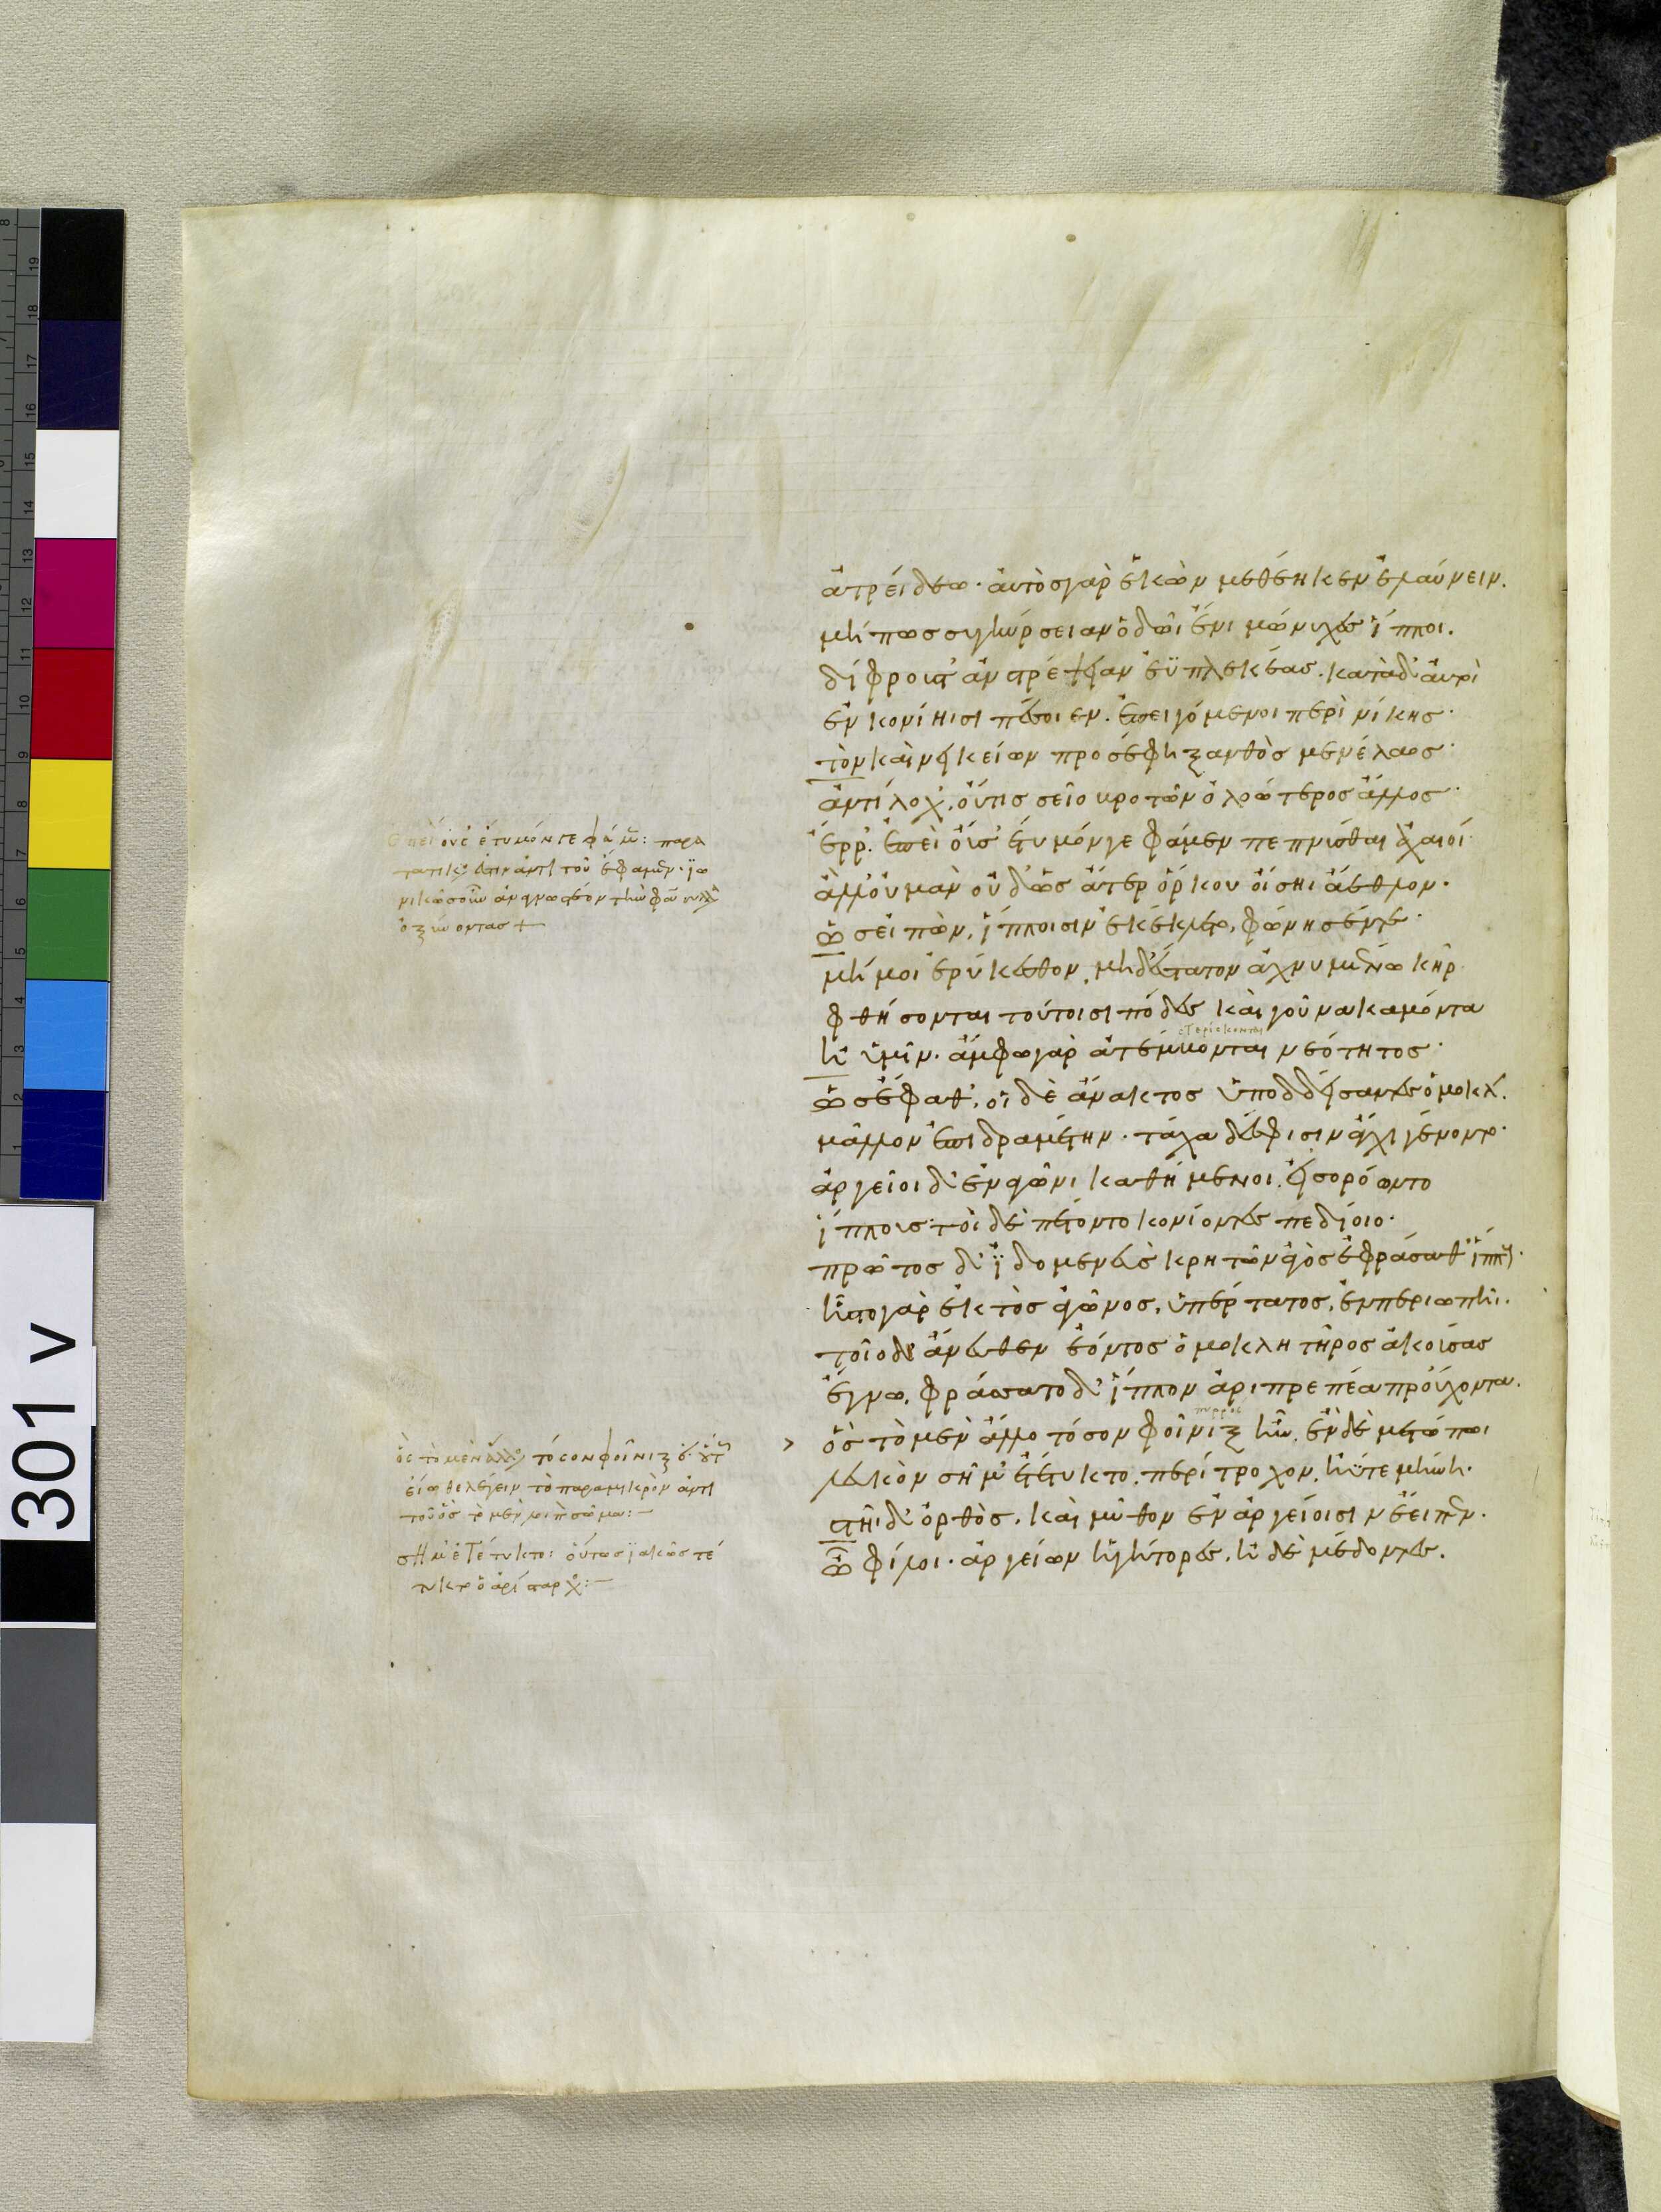 ἀτρείδεω· αὐτὸς γὰρ ἑκὼν μεθέηκεν ἐλαύνειν.
μήπως συγκύρσειαν ὁδῶι ἔνι μώνυχες ἵπποι.
δίφρους τ' ἀνστρέψειαν ἐϋπλεκέας. κατὰ δ' αὐτοὶ
ἐν κονίηισι πέσοιεν. ἐπειγόμενοι περὶ νίκης·
τὸν καὶ νεικείων προσέφη ξανθὸς μενέλαος·
ἀντίλοχ', οὔτις σεῖο βροτῶν ὀλοώτερος ἄλλος·
ἔρρ'. ἐπεὶ οὔ σ' ἔτυμόν γε φάμεν πεπνῦσθαι ἀχαιοί·
ἀλλ' οὐ μὰν οὐδ' ὧς ἄτερ ὅρκου οἴσηι ἄεθλον.
ὣς εἰπὼν, ἵπποισιν ἐκέκλετο, φώνησέν τε·
μή μοι ἐρύκεσθον, μὴ δ' ἕστατον ἀχνυμένω κῆρ
φθήσονται τούτοισι πόδες καὶ γοῦνα καμόντα
στερίσκονται
ἢ ὑμῖν. ἄμφω γὰρ ἀτέμβονται νεότητος·
ὣς ἔφαθ', οἱ δὲ ἄνακτος ὑποδδείσαντες ὁμοκλ.
μᾶλλον ἐπιδραμέτην. τάχα δέ σφισιν ἄγχι γένοντο·
ἀργεῖοι δ' ἐν ἀγῶνι καθήμενοι. εἰσορόωντο
ἵππους· τοὶ δὲ πέτοντο κονίοντες πεδίοιο·
πρῶτος δ' ἰδομενεὺς κρητῶν ἀγὸς ἐφράσαθ' ἵππους·
ἧστο γὰρ ἐκτὸς ἀγῶνος, ὑπέρτατος, ἐν περιωπῆι.
τοῖο δ' ἄνευθεν ἐόντος ὁμοκλητῆρος ἀκούσας
ἔγνω, φράσσατο δ' ἵππον ἀριπρεπέα προὔχοντα.
πυρρός
> ὃς τὸ μὲν ἄλλο τόσον φοῖνιξ ἦν, ἐν δὲ μετώπωι
λευκὸν σῆμ' ἐτέτυκτο. περίτροχον. ἠΰτε μήνη.
στῆ δ' ὀρθὸς. καὶ μῦθον ἐν ἀργείοισιν ἔειπεν.
ὦ φίλοι. ἀργείων ἡγήτορες, ἠδὲ μέδοντες.
ἐπεὶ οὔ σ' ἔτυμόν γε φάμεν: παρα
τατικός ἐστιν ἀντὶ τοῦ ἔφαμεν· ἰω
νικῶς οὖν ἀναγνωστέον τὴν φα συλλ
ὀξύνοντας +
ὃς τὸ μὲν ἄλλο τόσον φοῖνιξ οὕτως
εἴωθε λέγειν τὸ παραμικρὸν ἀντὶ
τοῦ ὃς τὸ μὲν λοιπὸν σῶμα:-
σῆμ' ἐτέτυκτο: οὕτως ἰακῶς τέ
τυκτο ὁ ἀρίσταρχ:-
301 v